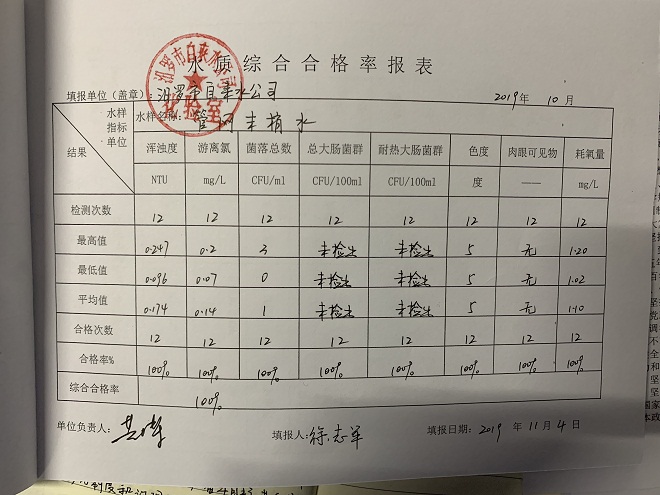 水质综合合格率报表
汨罗市自来水公司
化验室
填报单位（盖章）：汨罗市自来水公司 2019年 10月
水样
指标
单位
结果
水样名称：管网末梢水
浑浊度 游离氯 菌落总数 总大肠菌群 耐热大肠菌群 色度 肉眼可见物 耗氧量
NTU mg/L CFU/ml CFU/100ml CFU/100ml 度 —— mg/L
检测次数 12 12 12 12 12 12 12 12
最高值 0.247 0.2 3 未检出 未检出 5 无 1.20
最低值 0.096 0.07 0 未检出 未检出 5 无 1.02
平均值 0.174 0.14 1 未检出 未检出 5 无 1.10
合格次数 12 12 12 12 12 12 12 12
合格率% 100% 100% 100% 100% 100% 100% 100% 100%
综合合格率 100%
单位负责人： 填报人：徐志军 填报日期：2019年11月4日